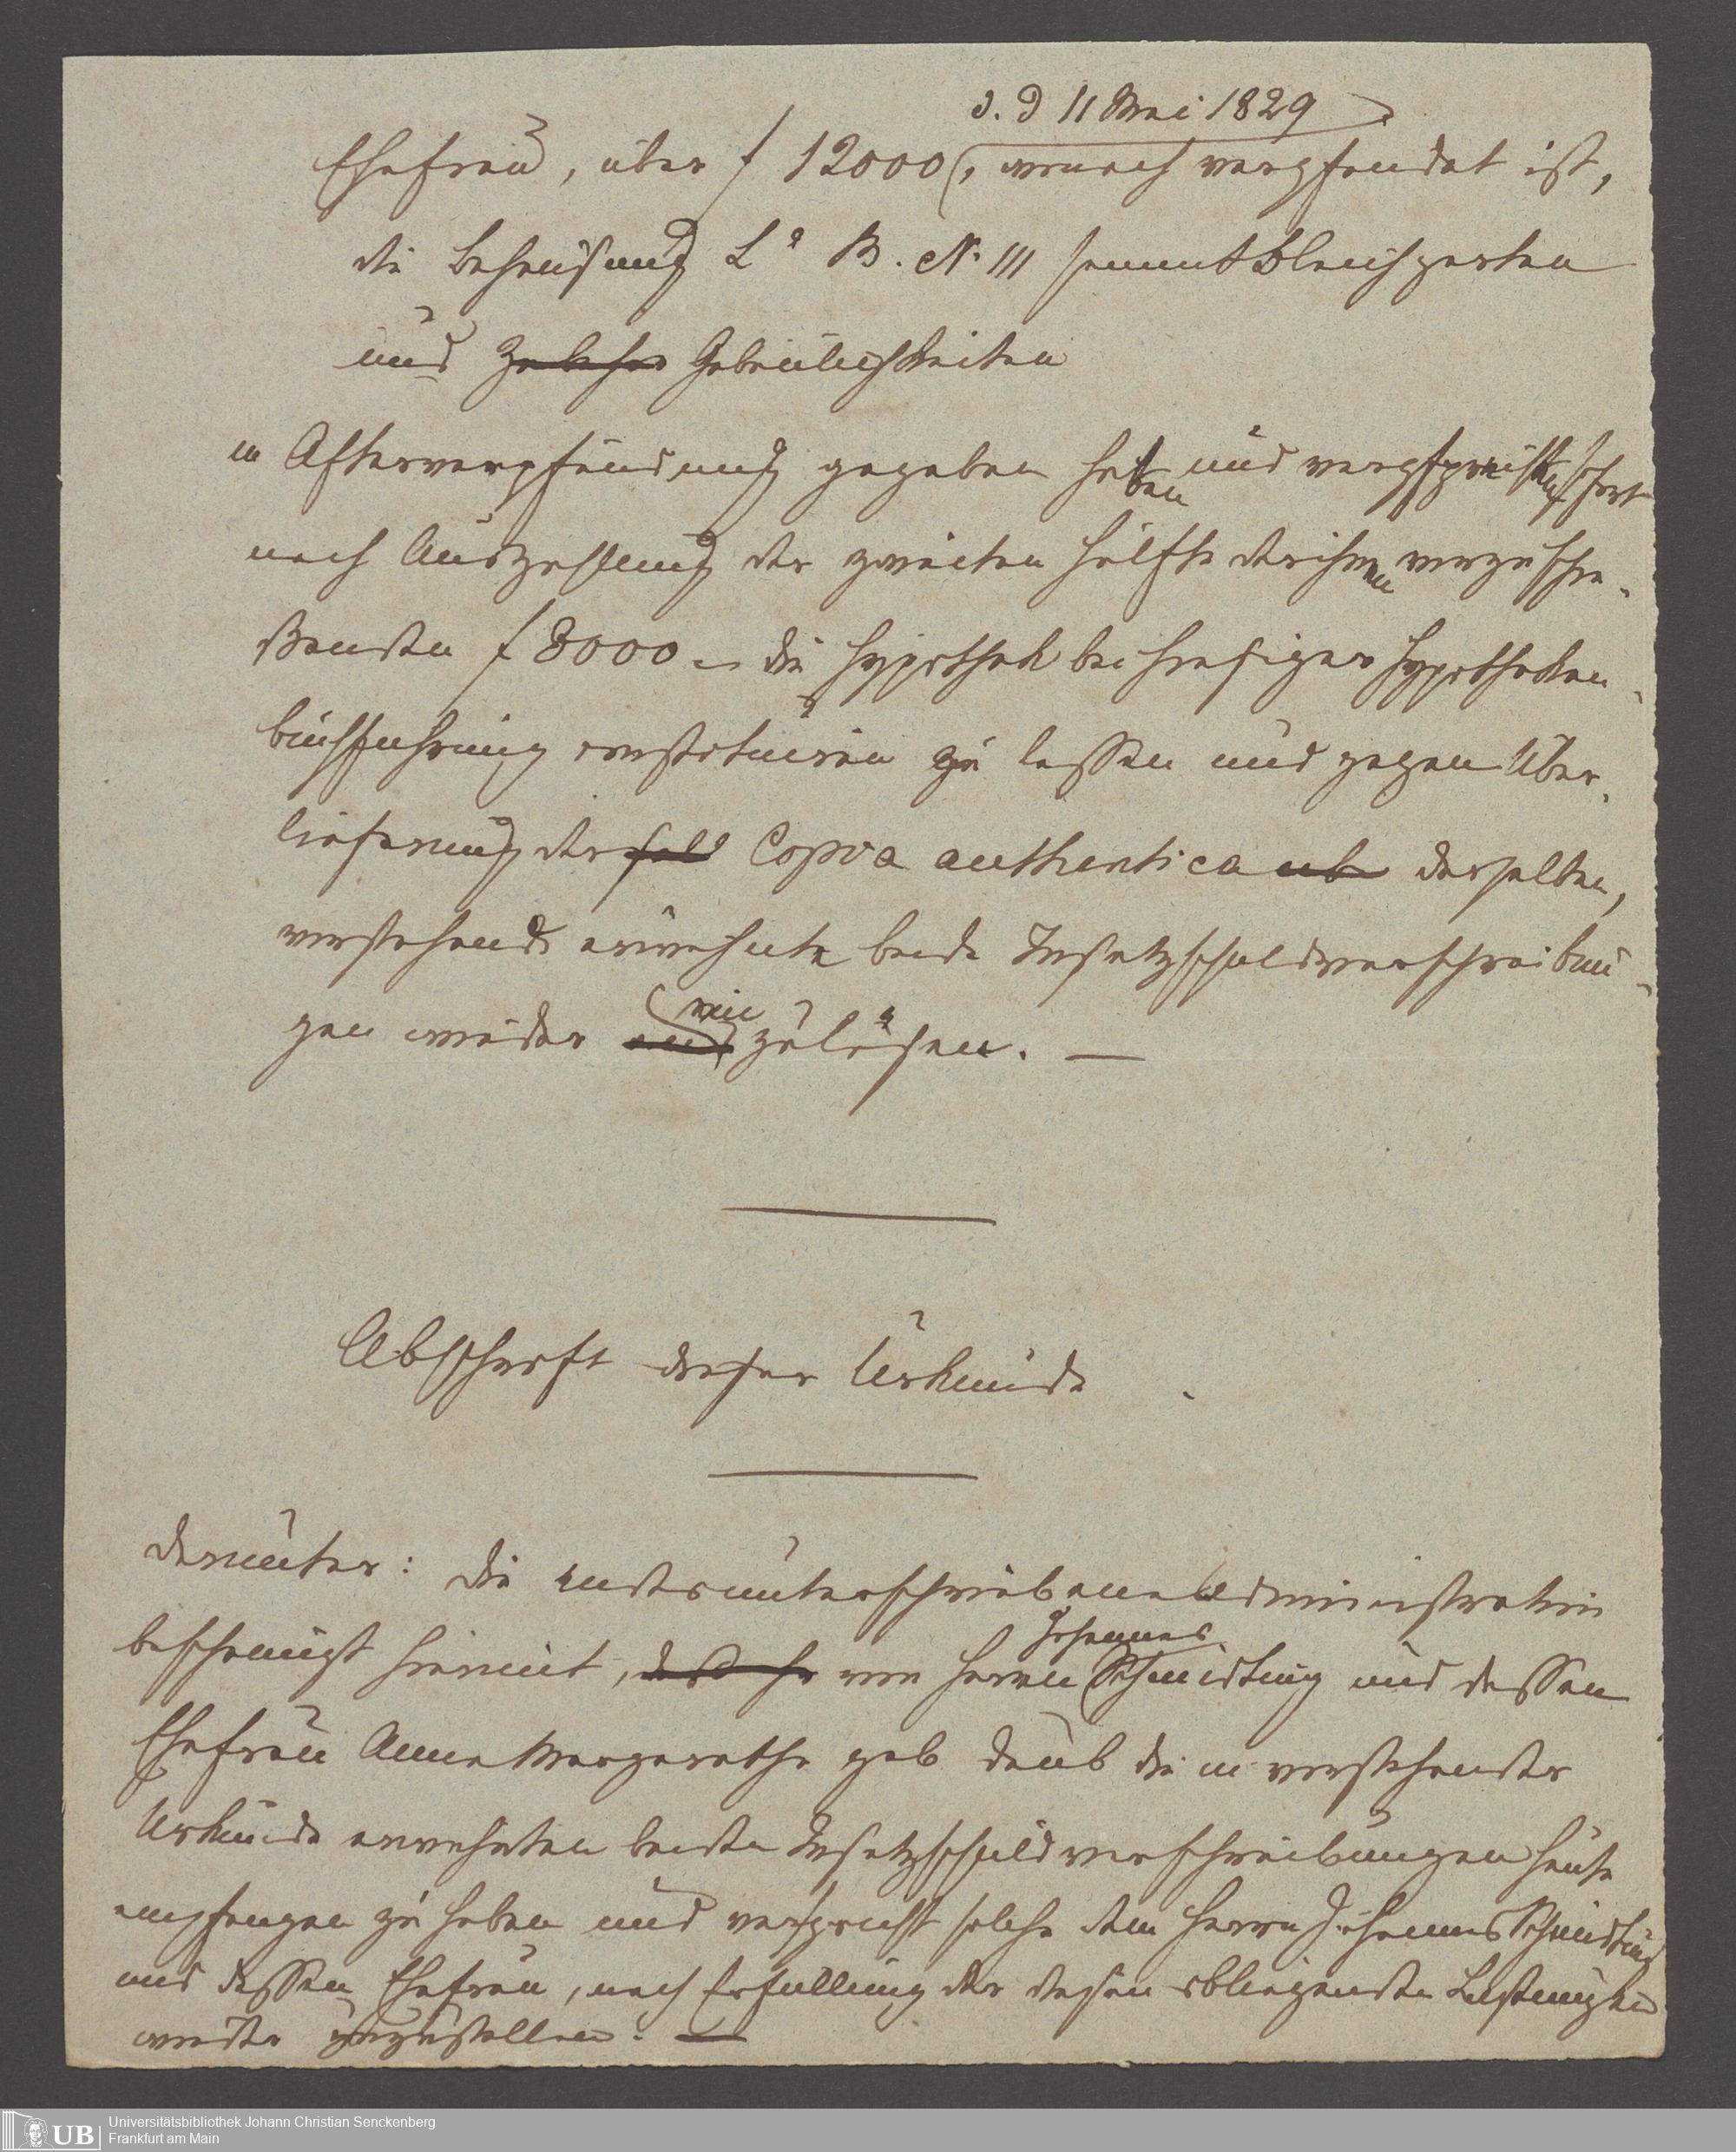 d. d 11 Mai 1829
Ehefrau, über f 12000, wonach verpfändet ist,
die Behausung La B. No 111 sammt Bleichgarten
und Gebäulichkeiten
in Afterverpfändung gegeben haben und versprechen sofort
nach Auszahlung der zweiten Hälfte der ihnen vorzuschie-
ßenden f 8000 die Hypothek bei hiesiger Hypotheken-
buchführung constituiren zu lassen und gegen Über-
lieferung der Copia authentica derselben,
vorstehende erwähnte beide Insatzschuldverschreibun-
gen wieder einzulösen. —
Abschrift dieser Urkunde
darunter: Die endesunterschriebene Administration
bescheinigt hiermit, von Herrn Johannes Schmidting und dessen
Ehefrau Anna Margaretha geb Daub die in vorstehender
Urkunde erwähnten beiden Insatzschuldverschreibungen heute
empfangen zu haben und verspricht solche dem Herrn Johannes Schmidting
und dessen Ehefrau, nach Erfüllung der diesen obliegenden Leistungen
wieder zuzustellen. —
Universitätsbibliothek Johann Christian Senckenberg
UB Frankfurt am Main